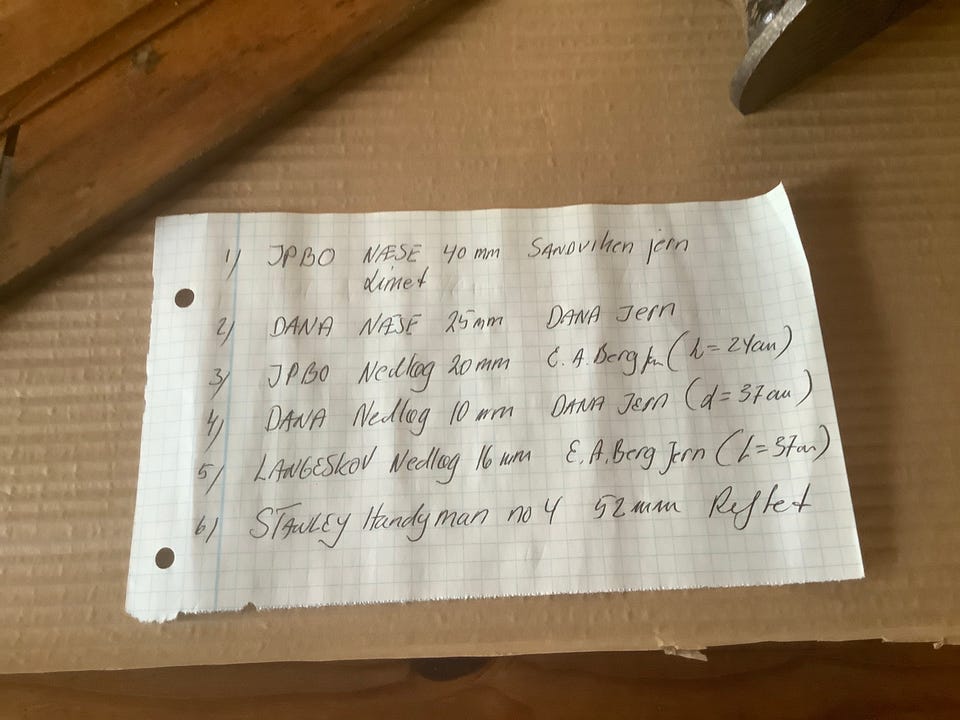 1) JPBO NÆSE 40 mm SANDVIKEN jern
Limet
2) DANA NÆSE 25mm DANA Jern
3) JPBO Nedlæg 20mm E. A. Berg (L=24cm)
4) DANA Nedlæg 10 mm DANA Jern (d=37cm)
5) LANGESKOV Nedlæg 16 mm E. A. Berg Jern (L=37cm)
6) STANLEY Handyman no 4 52mm Riflet